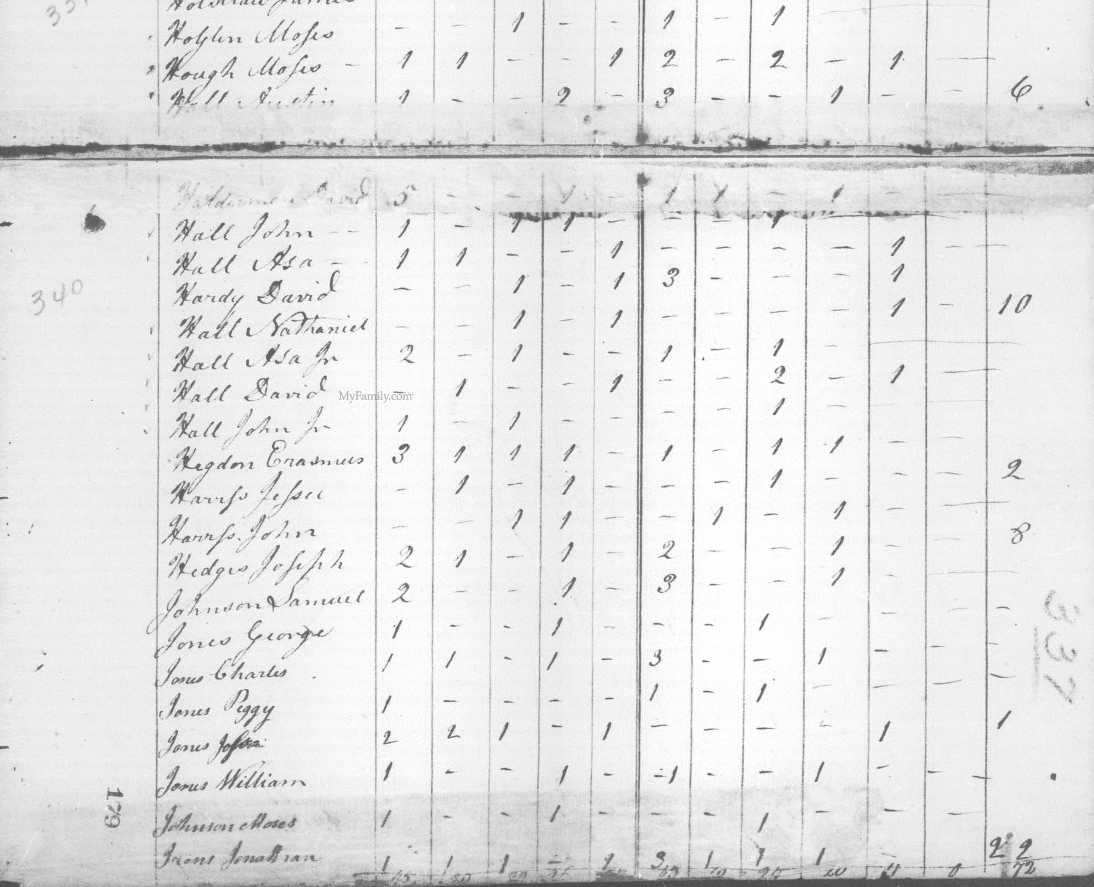 331
Moses - 1 - - 1 - 1
Hough Moses - 1 1 - - 1 2 - 2 - 1 - -
Hall Austin 1 - - 2 - 3 - - 1 - - 6
David 5 - - 1 - 1 1 - 1 - -
Hall John - - 1 - 1 1 - - - 1 - - -
Hall Asa - 1 1 - - 1 - - - - 1 - -
340 Hardy David - - 1 - 1 3 - - - 1
Hall Nathaniel - - 1 - 1 - - - - 1 - 10
Hall Asa Jr 2 - 1 - - 1 - 1 -
Hall David - 1 - - 1 - - 2 - 1 - -
MyFamily.com
Hall John Jr 1 - 1 - - - - 1 - - -
Hegdon Erasmus 3 1 1 1 - 1 - 1 1 - -
Harrss Jesse - 1 - 1 - - - 1 - - - 2
Harrss John - - 1 1 - - 1 - 1 - -
Hedges Joseph 2 1 - 1 - 2 - - 1 - - 8
Johnson Samuel 2 - - 1 - 3 - - 1 - -
Jones George 1 - - 1 - - - 1 - - - -
Jones Charles 1 1 - 1 - 3 - - 1 - -
337
Jones Peggy 1 - - - - 1 - 1 - - - -
Jones 2 2 1 - 1 - - - - 1 1
Jones William 1 - - 1 - 1 - - 1 - - -
179
Johnson Moses 1 - - 1 - - - 1 - - -
Irons Jonathan 1 1 1 - 3 1 1 1 2
72